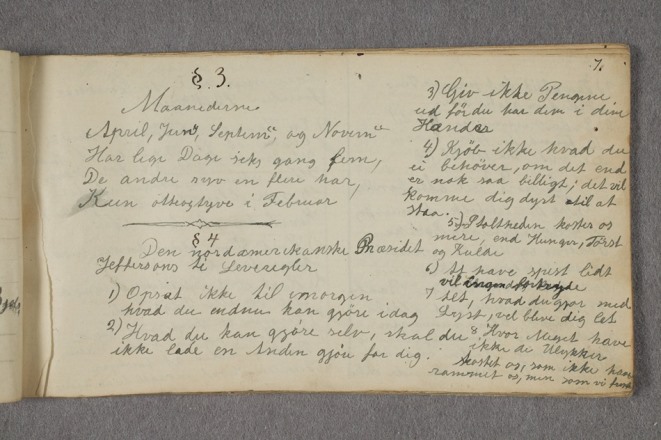 7.
§ 3.
Maanederne
April, Juni, Septemr, og Novemr
Har lige Dage seks gang fem,
De andre syv en flere har,
Kun otteogtyve i Februar
§ 4
Den nordamerikanske Præsident
Jeffersons ti Leveregler
1) Opsæt ikke til imorgen
hvad du endnu kan gjöre idag
2) Hvad du kan gjöre selv, skal du
ikke lade en Anden gjöre for dig.
3) Giv ikke Pengene
ud för du har dem i dine
Hænder
4) Kjöb ikke hvad du
ei behöver, om det end
er nok saa billigt; det vil
komme dig dyrt til at
staa.
5) Stoltheden koster os
mere, end Hunger, Törst
og Kulde
6) At have spist lidt
vil ingen fortryde
7 Let, hvad du gjör med
Lyst, vil blive dig let
8 Hvor Meget have
ikke de Ulykker
kostet os, som ikke have
rammet os, men som vi